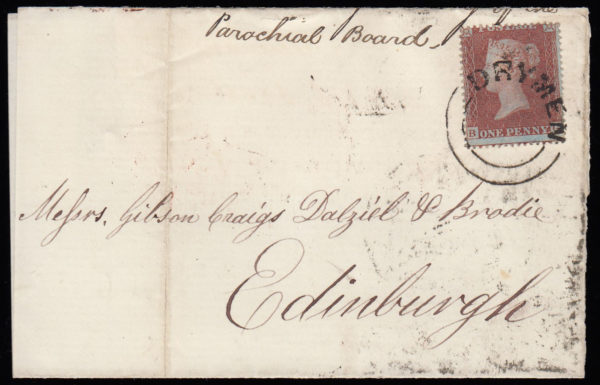 Parochial Board
DRYMEN
B
ONE PENNY
Messrs. Gibson Craigs Dalziel & Brodie
Edinburgh